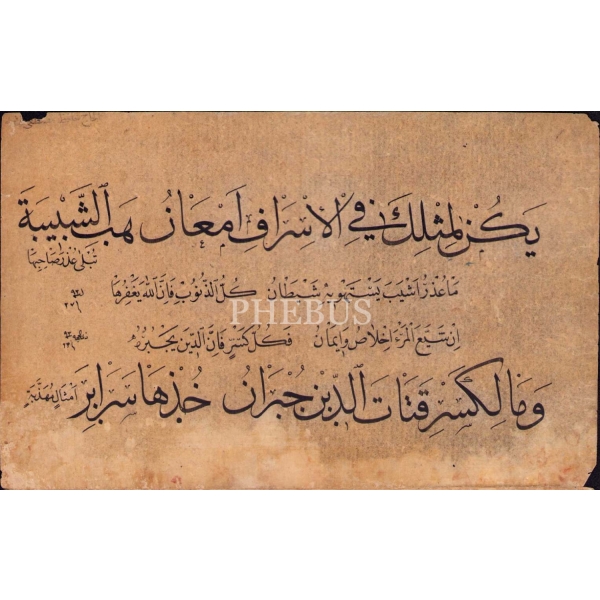 يَكُنْ لِمِثْلِكَ فِي الْاِسْرَافِ اِمْعَانُ هَبِ الشَّبِيبَةَ
تُبْلِى عُذْرَ صَاحِبِهَا
مَا عُذْرُ اَشْيَبَ يَسْتَهْوِيهِ شَيْطَانُ كُلُّ الذُّنُوبِ فَاِنَّ اللهَ يَغْفِرُهَا
PHEBUS
اِنْ شَيَّعَ الْمَرْءَ اِخْلَاصٌ وَاِيمَانُ فَكُلُّ كَسْرٍ فَاِنَّ الدِّينَ يَجْبُرُهُ
وَمَا لِكَسْرِ قَنَاتِ الدِّينِ جُبْرَانُ خُذْهَا سَرَايِرَ
اَمْثَالٍ مُهَذَّبَةٍ